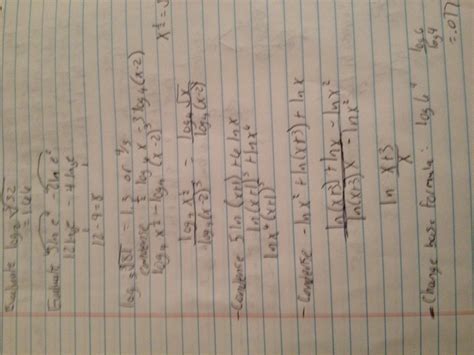 Evaluate log₂ ⁵√32
1.66
Evaluate 3lne⁴ - 2lne²
12lne - 4lne
12-4=8
log₃ ³√81 = 1.3 or 4/3
Condense ½ log₄ x - 3 log₄ (x-2)
log₄ x^½ - log₄ (x-2)³
log₄ x^½ / log₄ (x-2)³ = log₄ √x / log₄ (x-2)
x^½ = √
- Condense 5 ln (x+1) + 6 ln x
ln (x+1)⁵ + ln x⁶
ln x⁶ (x+1)⁵
- Condense - ln x² + ln (x+3) + ln x
ln (x+3) + ln x - ln x²
ln (x+3) x - ln x²
ln (x+3)/x
- Change base formula: log 6⁴
log 6 / log 4
= .077